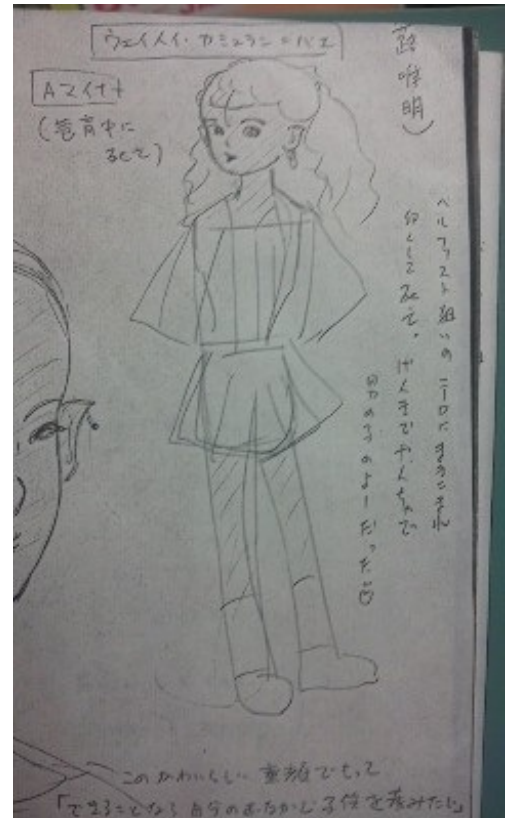 ウェイメイ・カミュラン＝バエ
Aマイナト
(
中に
死亡)
唯明)
ベルファスト狙いのテロにまきこまれ
死亡。げんきでやんちゃで
男の子のよーだった
このかわいらしい童顔でもって
「できることなら自分のおなかで子供を産みたい」